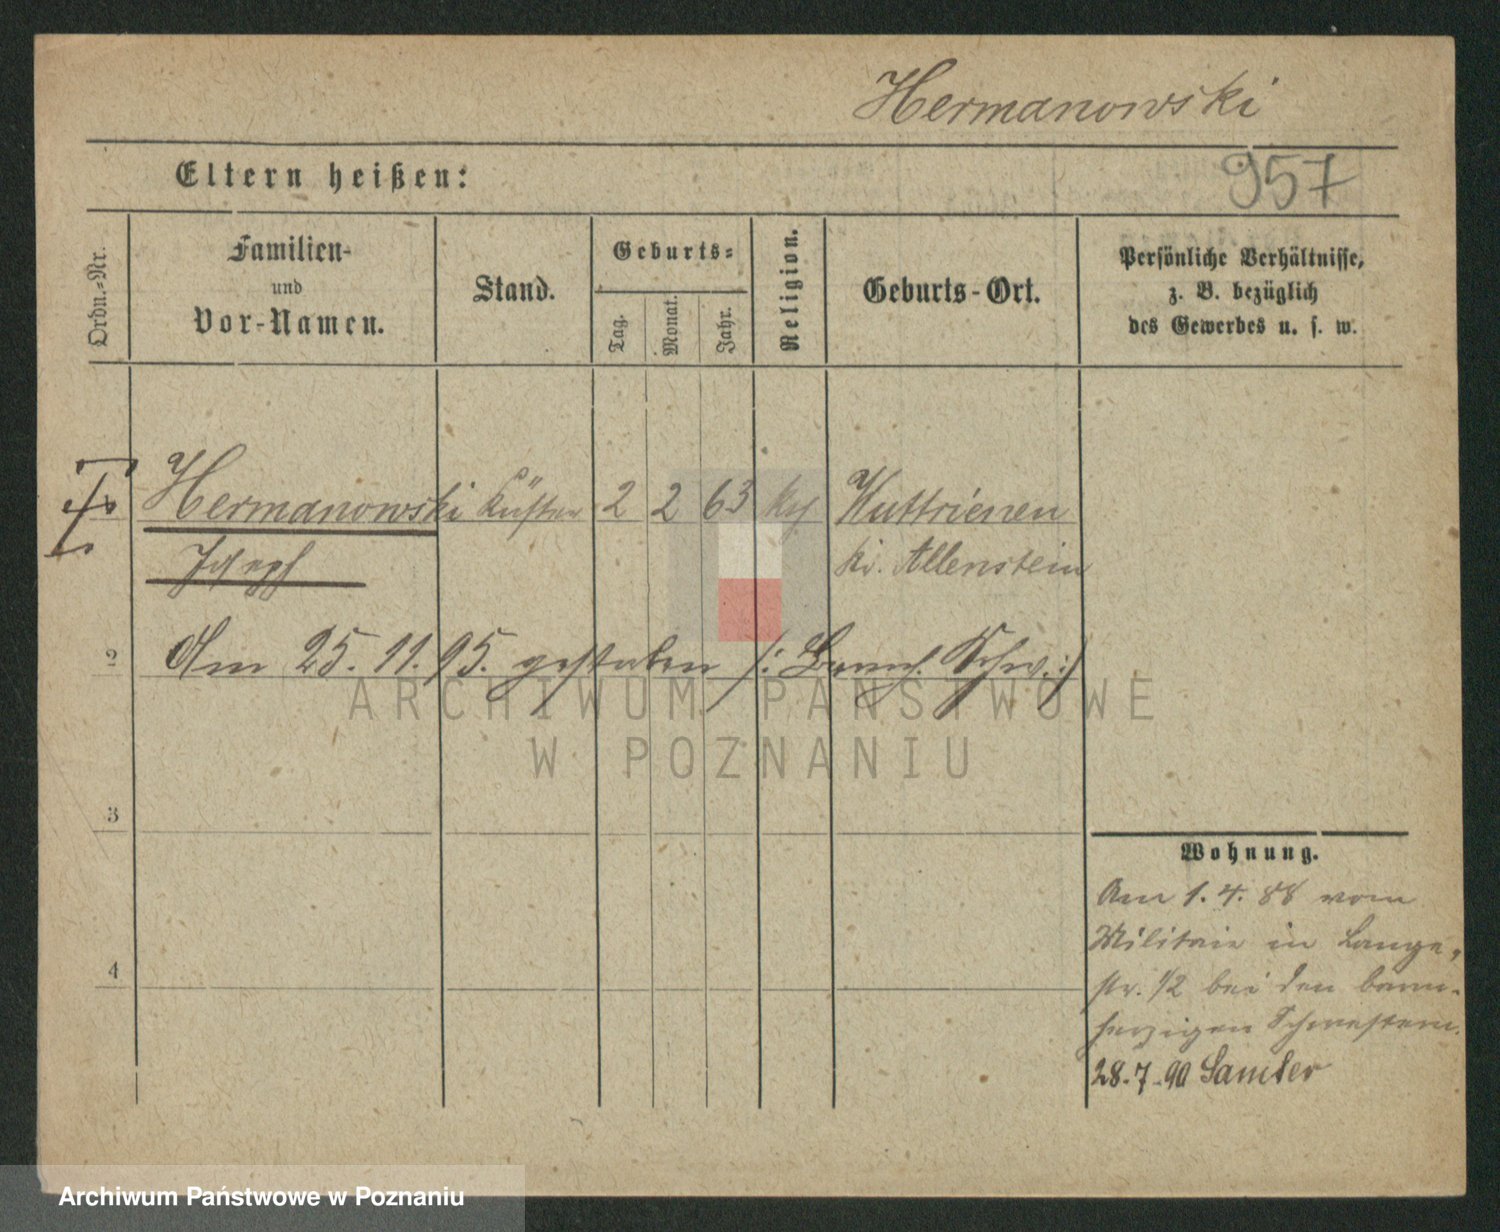 Hermanowski
957
Eltern heißen:
Ordn.-Nr.
Familien-
und
Vor-Namen.
Stand.
Geburts-
Tag.
Monat.
Jahr.
Religion.
Geburts-Ort.
Persönliche Verhältnisse,
z. B. bezüglich
des Gewerbes u. s. w.
Hermanowski Küster 2 2 63 Wuttrienen
Joseph Kr. Allenstein
2 Am 25. 11. 95. gestorben /: Barmh. Schw. :/
ARCHIWUM PAŃSTWOWE
W POZNANIU
3
Wohnung.
Am 1. 4. 88 vom
Militair in Lange-
4
str. 1/2 bei den barm-
herzigen Schwestern.
28.7.90 Samter
Archiwum Państwowe w Poznaniu